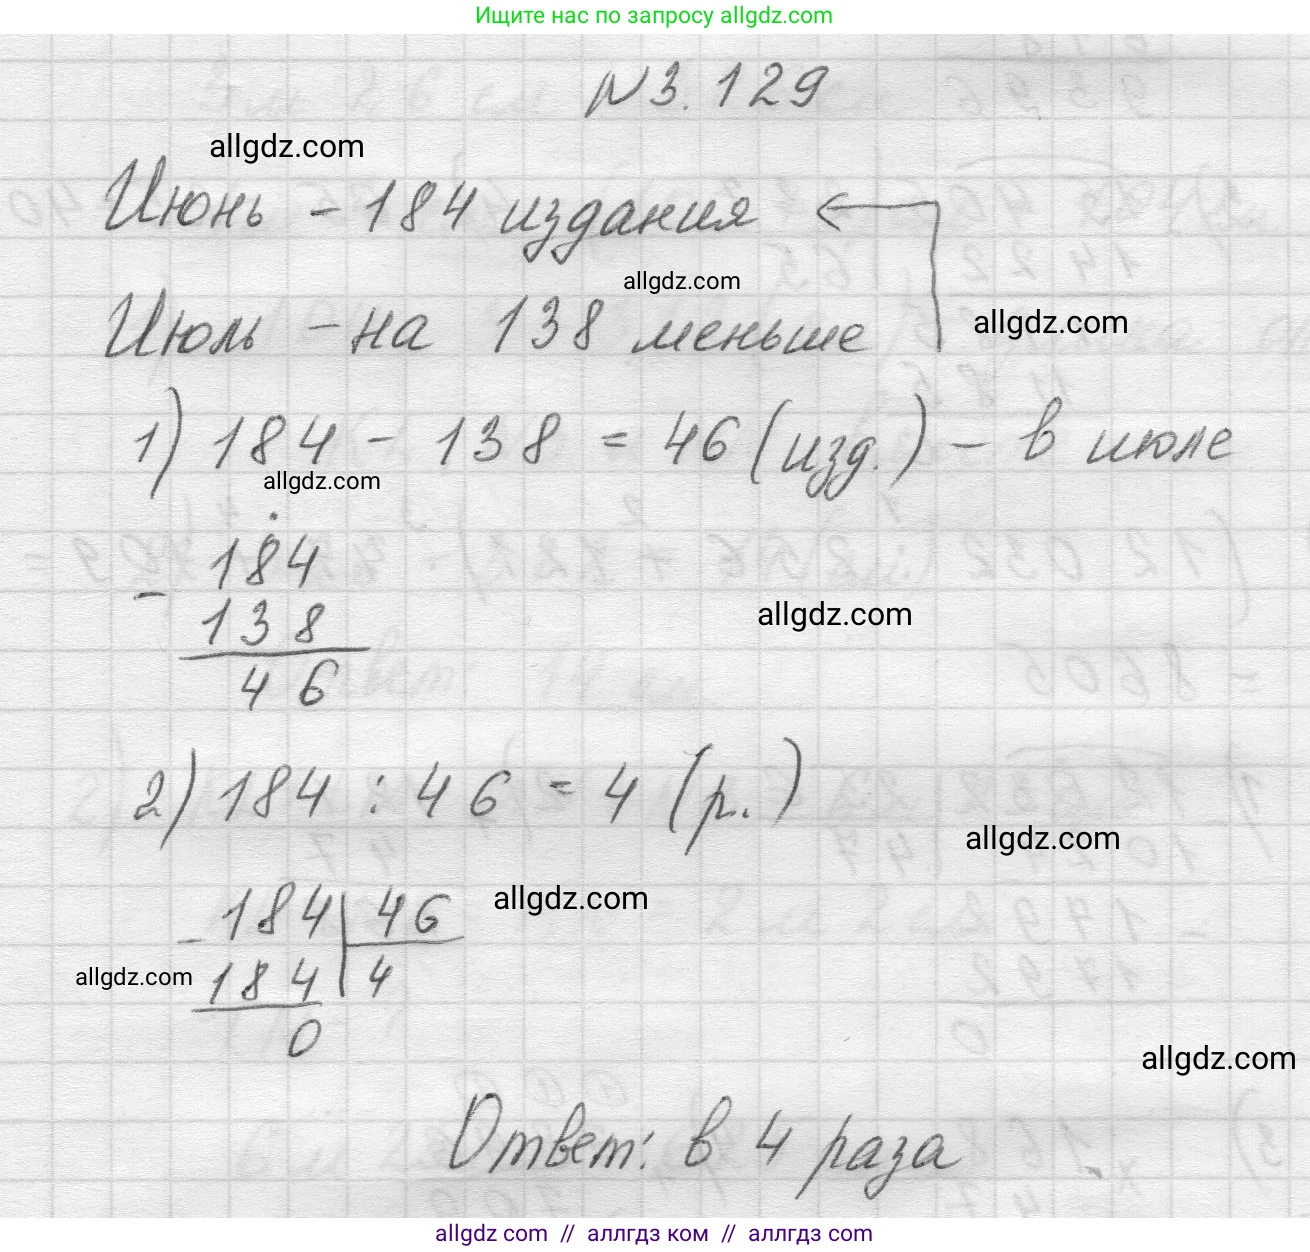 Ищите нас по запросу allgdz.com
N3.129
allgdz.com
Июнь - 184 издания
allgdz.com
Июль - на 138 меньше
allgdz.com
1) 184 - 138 = 46 (изд.) - в июле
allgdz.com
184
-
138
allgdz.com
46
2) 184 : 46 = 4 (р.)
allgdz.com
- 184 46
allgdz.com
184 4
allgdz.com
0
allgdz.com
Ответ: в 4 раза
allgdz.com // аллгдз ком // аллгдз.com